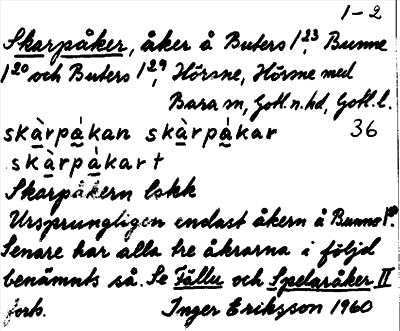 1-2
Skarpåker, åker å Buters 1²³, Bunne
1²⁰ och Buters 1²⁹, Hörsne, Hörsne med
Bara sn, Gotl. n. hd, Gotl. l.
skàrpåkan skàrpåkar 36
skàrpåkart
Skarpåkern lskk
Ursprungligen endast åkern å Bunne 1²⁰.
Senare har alla tre åkrarna i följd
benämnts så. Se Fällu och Spelaråker II
forts. Inger Eriksson 1960